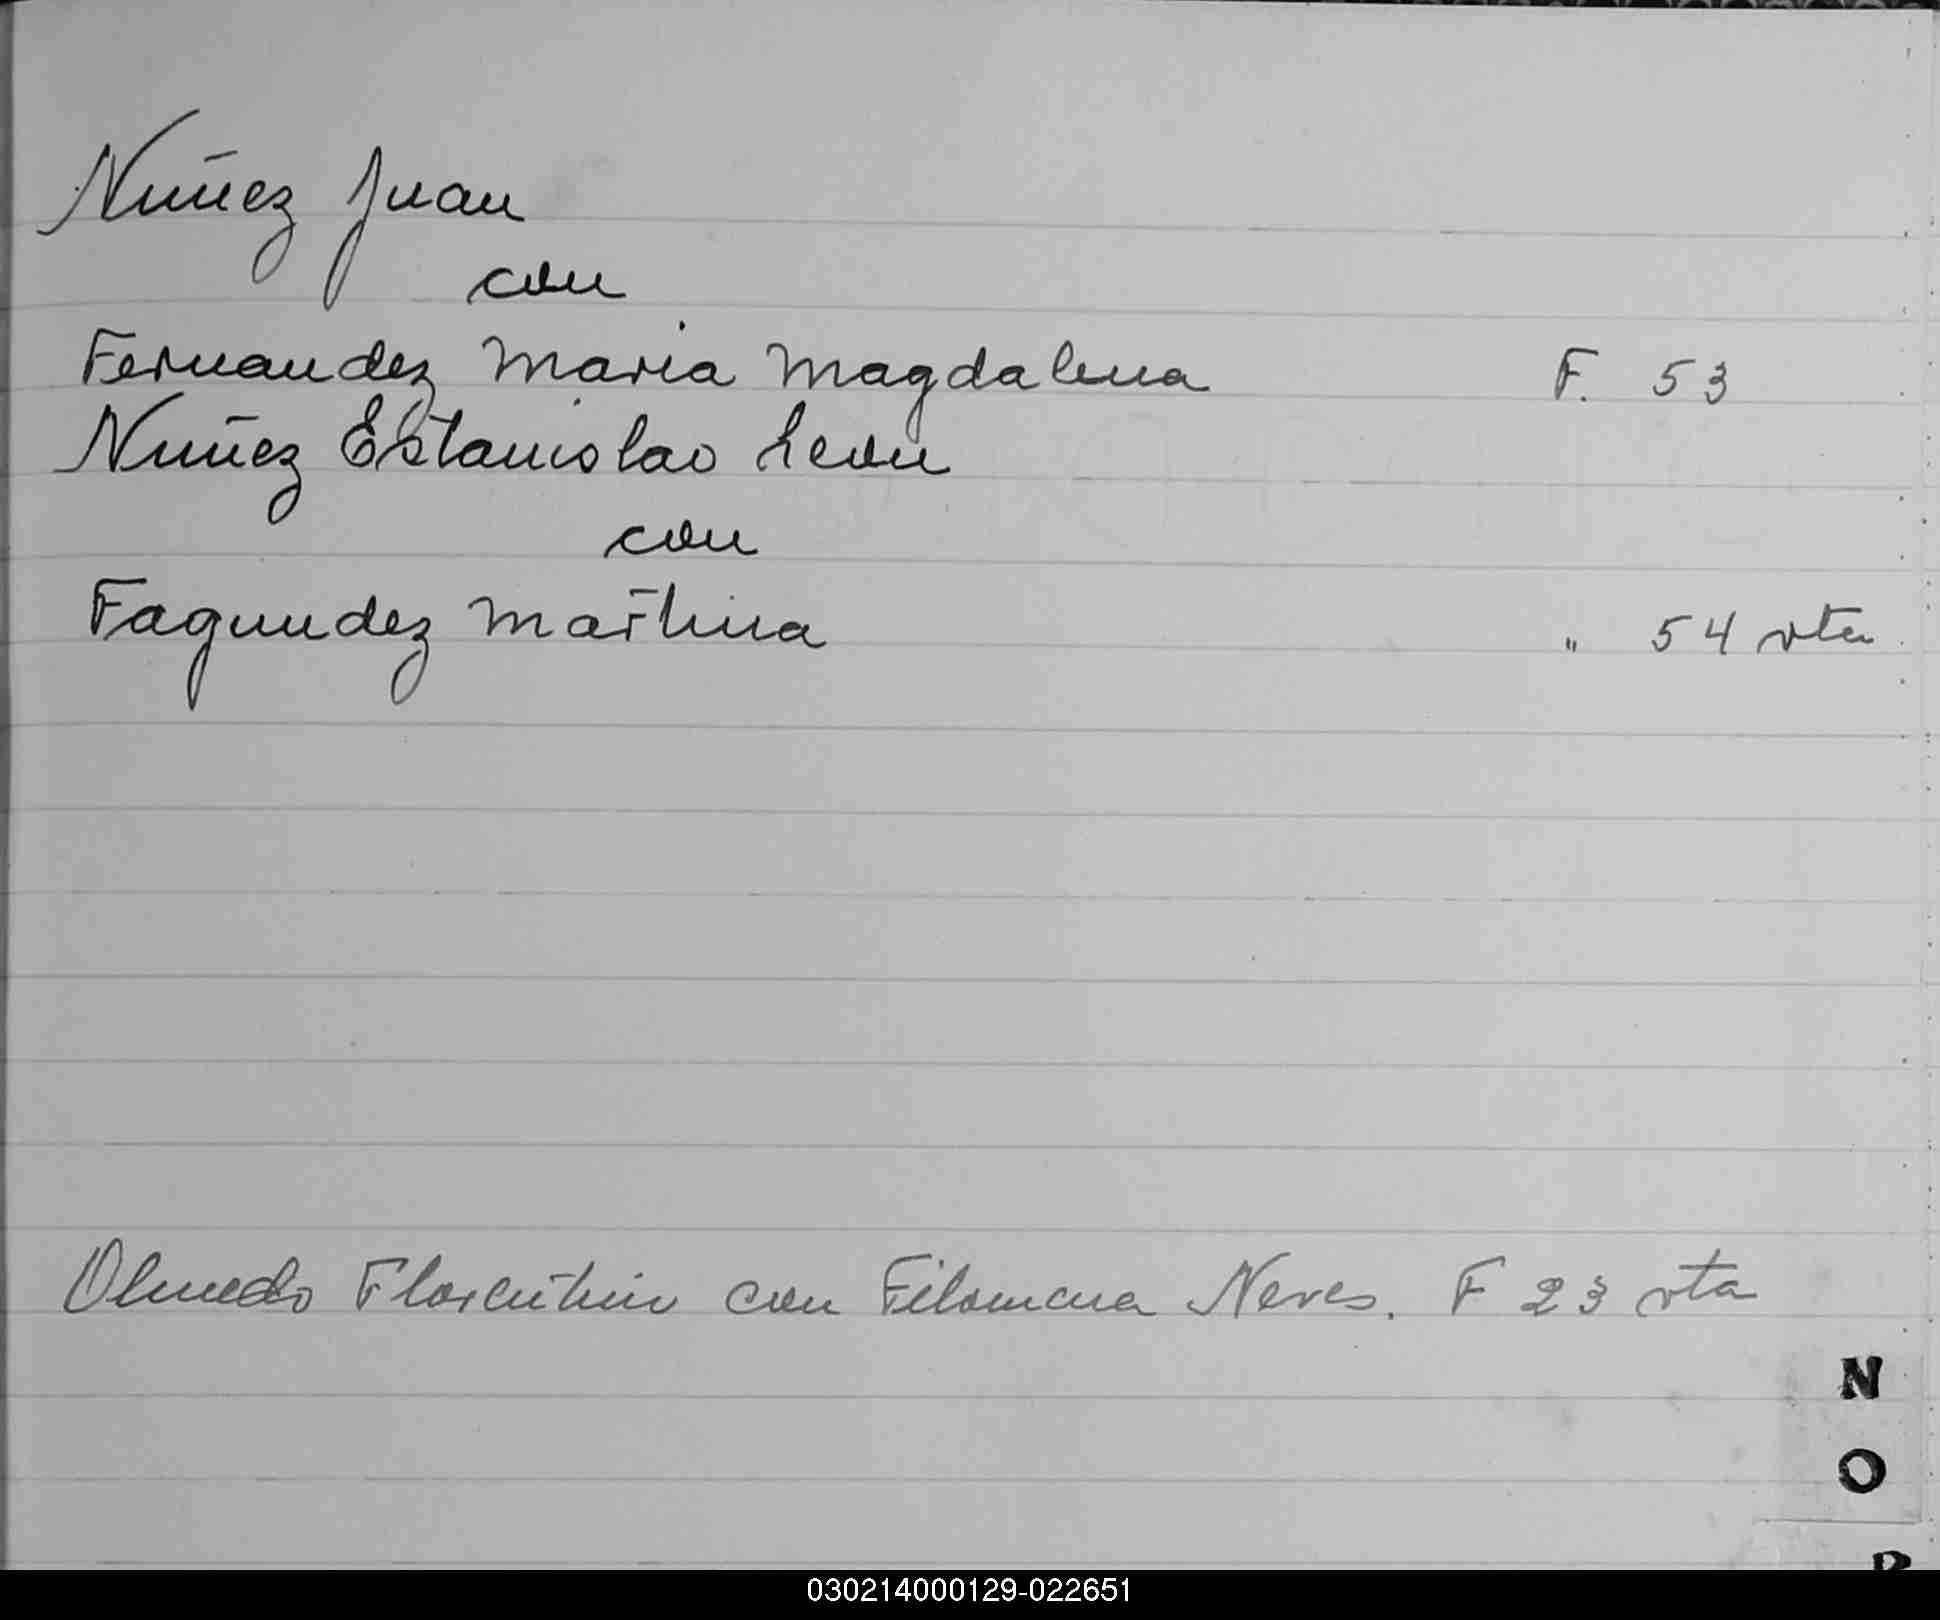 Nuñez Juan
con
Fernandez Maria Magdalena F. 53
Nuñez Estanislao Leon
con
Fagundez Martina " 54 vta
Olmedo Florentino con Filomena Neves. F 23 vta
N
O
P
030214000129-022651